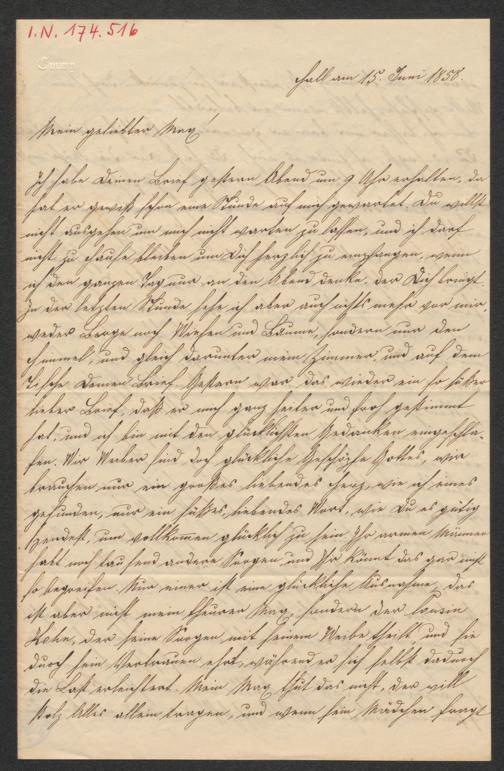 I.N. 174.516
Hall am 15. Juni 1858.
Mein geliebter Max!
Ich habe Deinen Brief gestern Abend um 9 Uhr erhalten, da
hat er gewiß schon eine Stunde auf mich gewartet. Du willst
nicht ausgehen um mich nicht warten zu lassen, und ich darf
nicht zu Hause bleiben um Dich herzlich zu empfangen, wenn
ich den ganzen Tag nur an den Abend denke, der Dich bringt.
In der letzten Stunde sehe ich aber auch nichts mehr vor mir,
weder Berge noch Wiesen und Bäume, sondern nur den
Himmel, und gleich darunter mein Zimmer, und auf dem
Tische Deinen Brief. Gestern war das wieder ein so süßer
lieber Brief, daß er mich ganz heiter und froh gestimmt
hat, und ich bin mit den glücklichsten Gedanken eingeschla-
fen. Wir Weiber sind doch glückliche Geschöpfe Gottes, wir
brauchen nur ein großes liebendes Herz, wie ich eines
gefunden, nur ein süßes, liebendes Wort, wie Du es gütig
spendest, um vollkommen glücklich zu sein. Ihr armen Männer
habt noch tausend andere Sorgen und Ihr könnt das gar nicht
so begreifen. Nur einer ist eine glückliche Ausnahme, das
ist aber nicht mein theurer Max, sondern der Cousin
, der seine Sorgen mit seinem Weibe theilt und sie
durch sein Vertrauen ehrt, während er sich selbst dadurch
die Last erleichtert. Mein Max thut das nicht, der will
stolz Alles allein tragen, und wenn sein Mädchen fragt